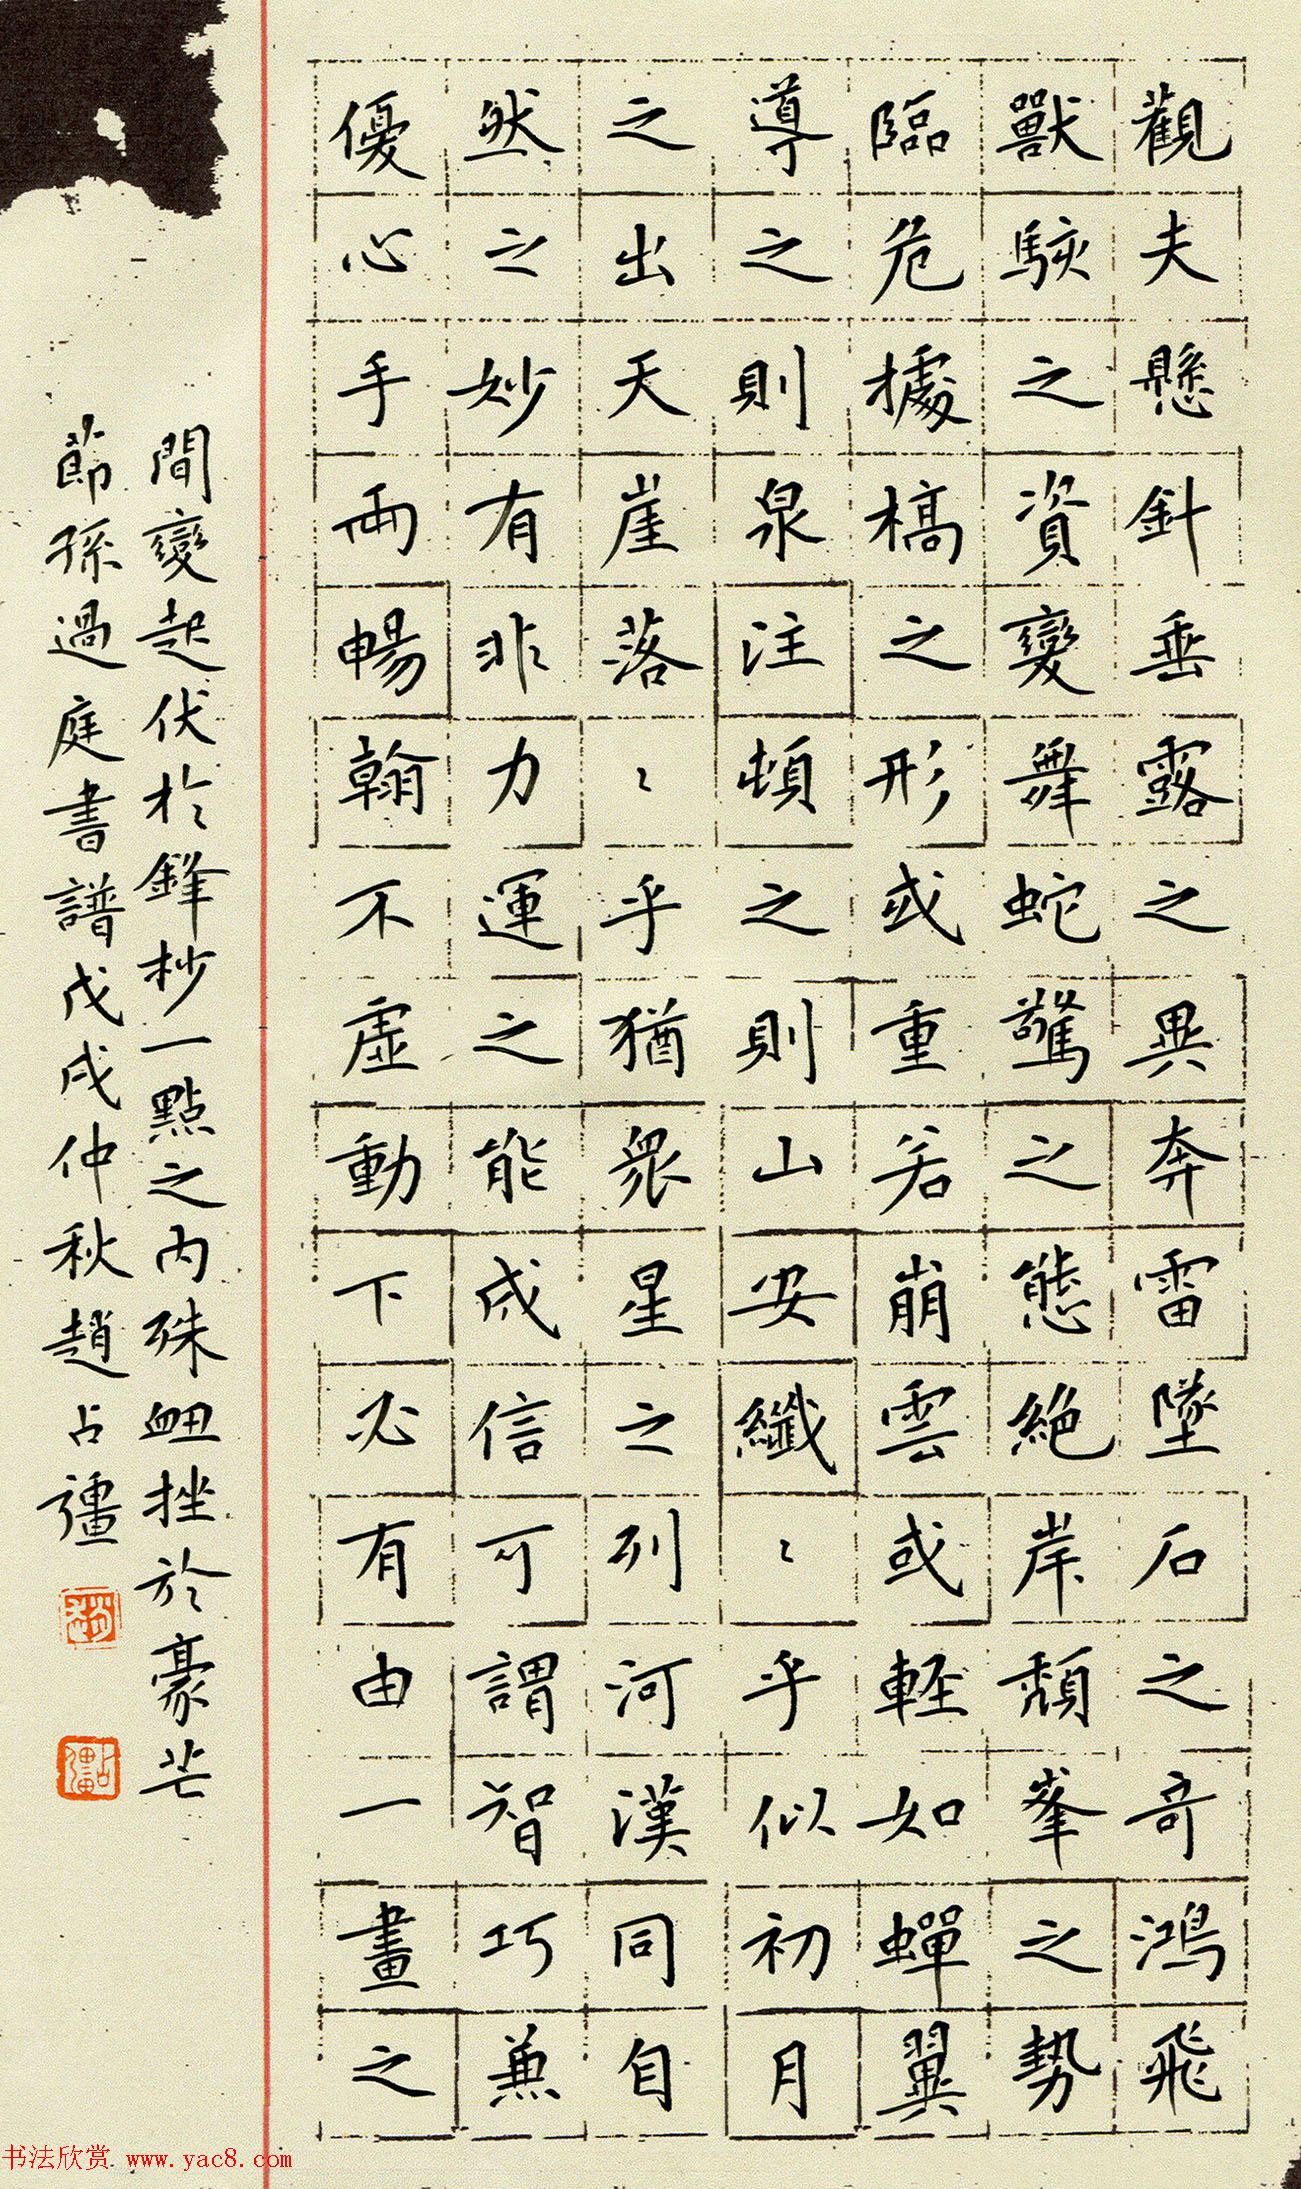 觀夫懸針垂露之異奔雷墜石之奇鴻飛
獸駭之資變舞蛇驚之態絕岸頹峯之勢
臨危據槁之形或重若崩雲或輕如蟬翼
導之則泉注頓之則山安纖〻乎似初月
之出天崖落〻乎猶眾星之列河漢同自
然之妙有非力運之能成信可謂智巧兼
優心手兩暢翰不虛動下必有由一畫之
間變起伏於鋒杪一點之內殊衄挫於豪芒
節孫過庭書譜戊戌仲秋趙占彊
趙
占彊
书法欣赏 www.yac8.com